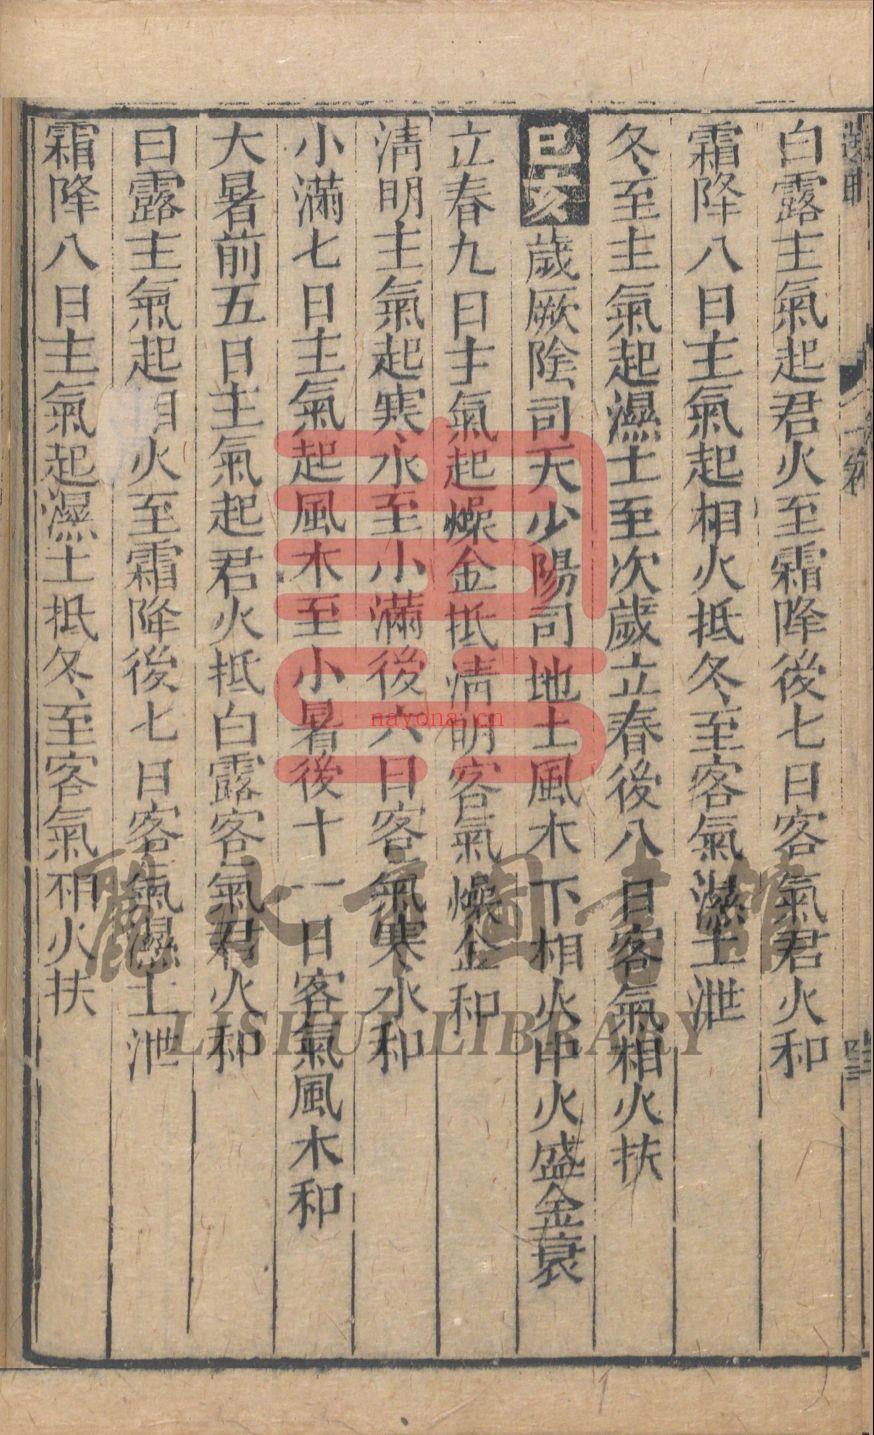 白露主氣起君火至霜降後七日客氣君火和
霜降八日主氣起相火抵冬至客氣濕土泄
冬至主氣起濕土至次歲立春後八日客氣相火扶
巳亥歲厥陰司天少陽司地土風木下相火中火盛金衰
立春九日主氣起燥金抵淸明客氣燥金和
淸明主氣起寒水至小滿後六日客氣寒水和
小滿七日主氣起風木至小暑後十一日客氣風木和
大暑前五日主氣起君火抵白露客氣君火和
白露主氣起相火至霜降後七日客氣濕土泄
霜降八日主氣起濕土抵冬至客氣相火扶
nayona.cn
麗水市圖書館
LISHUI LIBRARY